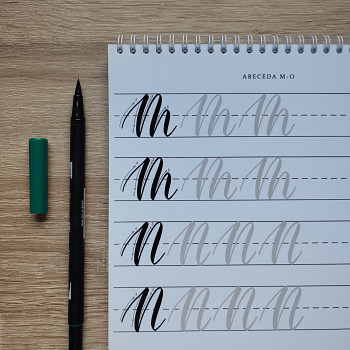 ABECEDA M-O
m m m
m m m
n n n n
n n n n